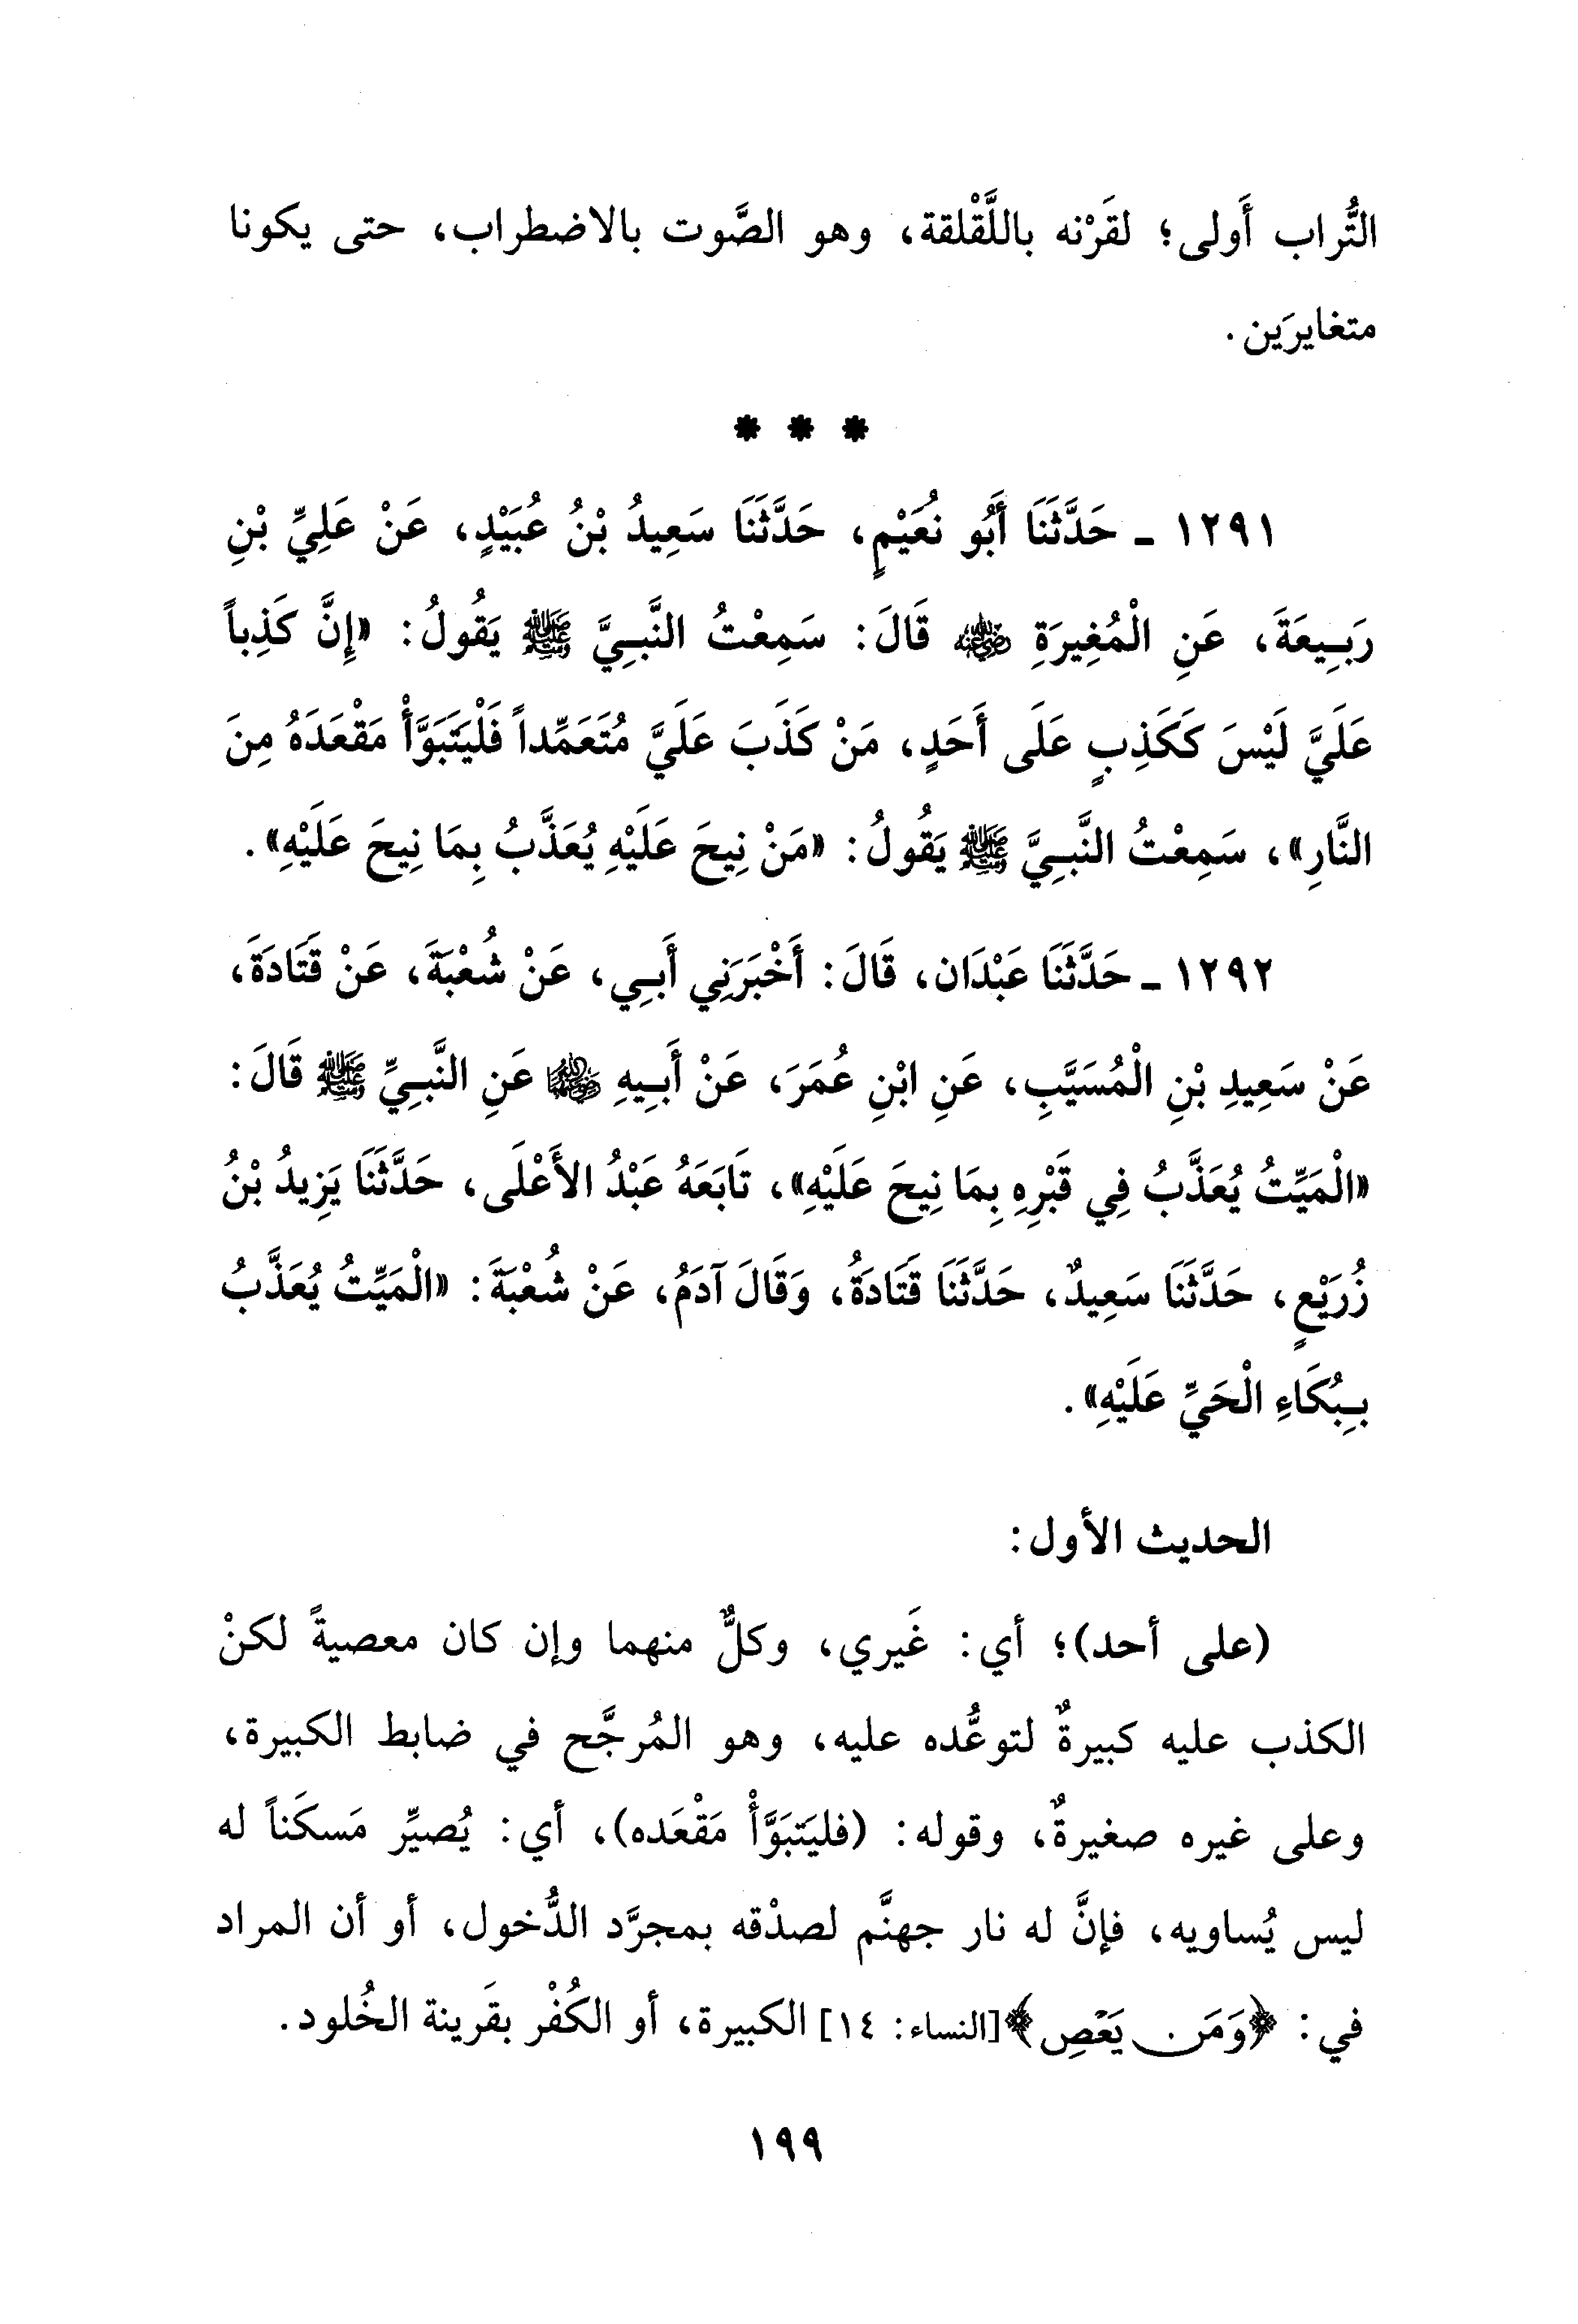 التُّراب أَولى؛ لقَرْنه باللَّقْلقة، وهو الصَّوت بالاضطراب، حتى يكونا
متغايرَين.
* * *
١٢٩١ ـ حَدَّثَنَا أَبُو نُعَيْمٍ، حَدَّثَنَا سَعِيدُ بْنُ عُبَيْدٍ، عَنْ عَلِيِّ بْنِ
رَبِيعَةَ، عَنِ الْمُغِيرَةِ رضي الله عنه قَالَ: سَمِعْتُ النَّبِيَّ ﷺ يَقُولُ: «إِنَّ كَذِباً
عَلَيَّ لَيْسَ كَكَذِبٍ عَلَى أَحَدٍ، مَنْ كَذَبَ عَلَيَّ مُتَعَمِّداً فَلْيَتَبَوَّأْ مَقْعَدَهُ مِنَ
النَّارِ»، سَمِعْتُ النَّبِيَّ ﷺ يَقُولُ: «مَنْ نِيحَ عَلَيْهِ يُعَذَّبُ بِمَا نِيحَ عَلَيْهِ».
١٢٩٢ ـ حَدَّثَنَا عَبْدَان، قَالَ: أَخْبَرَنِي أَبِي، عَنْ شُعْبَةَ، عَنْ قَتَادَةَ،
عَنْ سَعِيدِ بْنِ الْمُسَيَّبِ، عَنِ ابْنِ عُمَرَ، عَنْ أَبِيهِ رضي الله عنهما عَنِ النَّبِيِّ ﷺ قَالَ:
«الْمَيِّتُ يُعَذَّبُ فِي قَبْرِهِ بِمَا نِيحَ عَلَيْهِ»، تَابَعَهُ عَبْدُ الأَعْلَى، حَدَّثَنَا يَزِيدُ بْنُ
زُرَيْعٍ، حَدَّثَنَا سَعِيدٌ، حَدَّثَنَا قَتَادَةُ، وَقَالَ آدَمُ، عَنْ شُعْبَةَ: «الْمَيِّتُ يُعَذَّبُ
بِبُكَاءِ الْحَيِّ عَلَيْهِ».
الحديث الأول:
(على أحد)؛ أي: غَيري، وكلٌّ منهما وإن كان معصيةً لكنْ
الكذب عليه كبيرةٌ لتوعُّده عليه، وهو المُرجَّح في ضابط الكبيرة،
وعلى غيره صغيرةٌ، وقوله: (فليَتبَوَّأْ مَقْعَده)، أي: يُصيِّر مَسكَناً له
ليس يُساويه، فإنَّ له نار جهنَّم لصدْقه بمجرَّد الدُّخول، أو أن المراد
في: ﴿وَمَن يَعْصِ﴾[النساء: ١٤] الكبيرة، أو الكُفْر بقَرينة الخُلود.
١٩٩